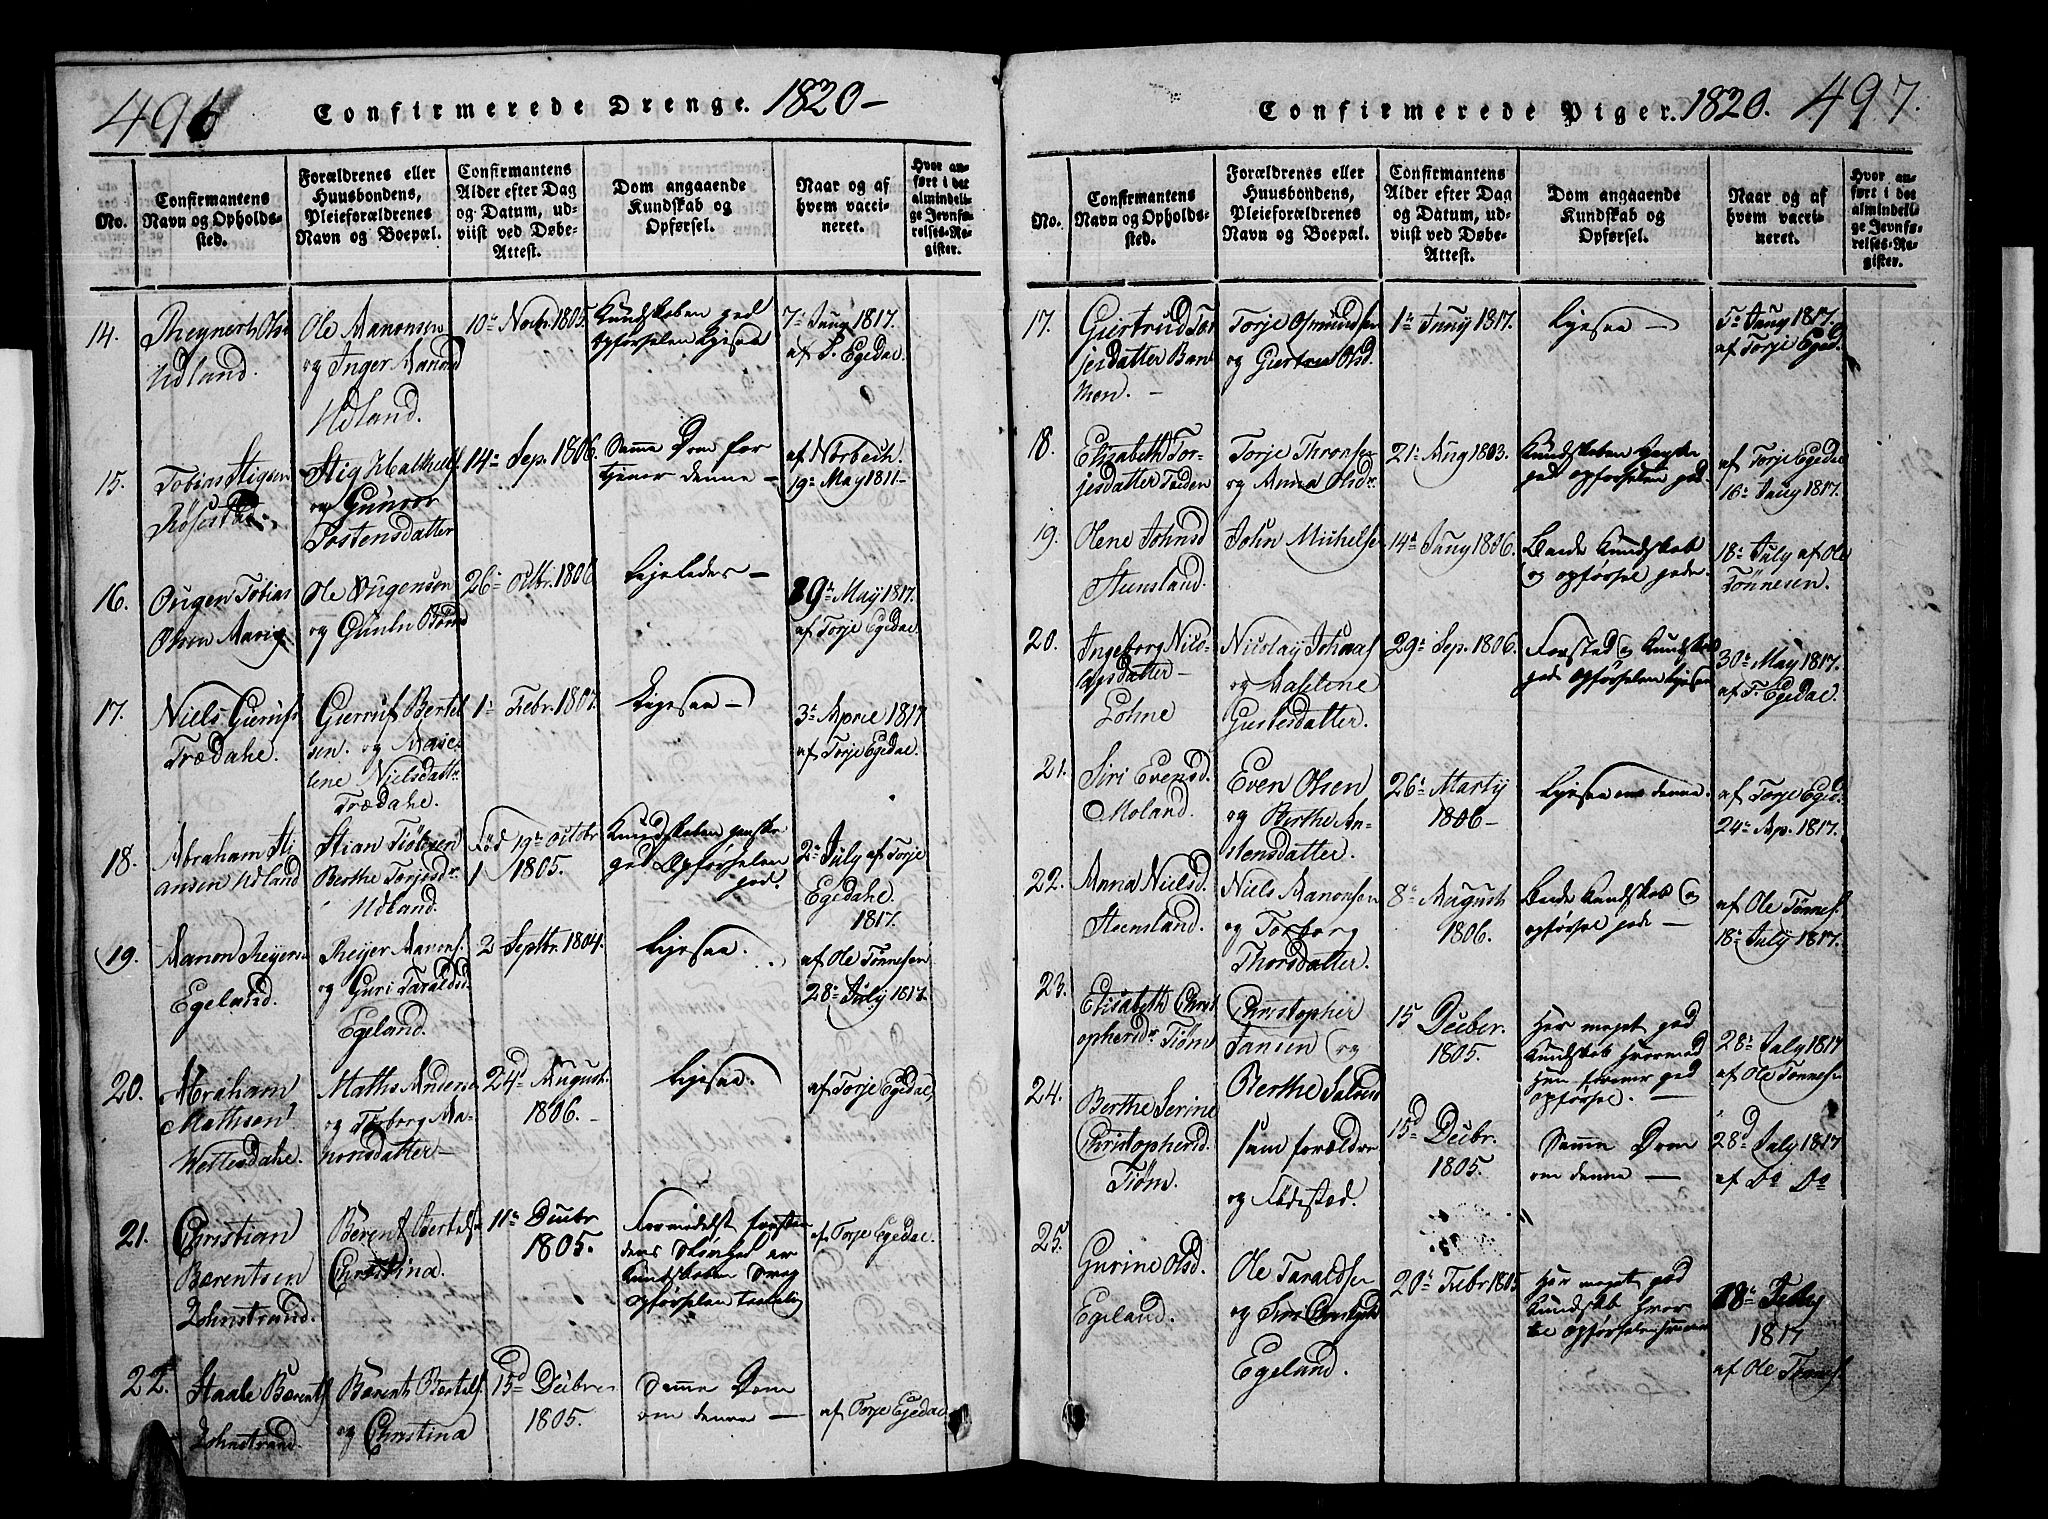 496
Confirmerede Drenge. 1820-
No.
Confirmantens Navn og Opholdssted.
Forældrenes eller Huusbondens, Pleieforældrenes Navn og Boepæl.
Confirmantens Alder efter Dag og Datum, udviist ved Døbe-Attest.
Dom angaaende Kundskab og Opførsel.
Naar og af hvem vaccineret.
Hvor anført i det almindelige Jevnførelses-Register.
14.
Udland.
Ole Aanonsen
og Inger Aanond
Udland.
10de Novbr. 1805.
Kundskaben god
Opførselen Ligesaa
7de Juny 1817.
af T. Egedal.
15.
Tobias Stigsen
Stig
og Gunvor
Tostensdatter
14de Sep. 1806.
Samme Dom for
tjener denne -
af Nørbech.
19de May 1811-
16.
Ougen Tobias
Olsen
Ole Ougensen
og
26de Octbr. 1806.
Ligeledes -
29de May 1817.
af Torje Egedal.
17.
Niels
Trædahl.
Bertel
sen. og
lene Nielsdattr.
Trædahl.
1de Febr. 1807.
Ligesaa -
3de April 1817
af Torje Egedal.
18.
Abraham Sti
ansen Udland
Stian
Berthe Torjesdr.
Udland.
Fød 19de Octbr.
1805.
Kundskaben ganske
god Opførselen
god.
2de July af Torje
Egedahl.
1817.
19.
Aanon Reyers
Egeland.
Reijer Aanons.
og Guri Taraldsd
Egeland.
2 Septbr. 1804.
Ligesaa.
af Ole Tønnesen
28de July 1817.
20.
Abraham
Mathsen
Maths Anders
og Torborg Aa-
nonsdatter-
24d August
1806.-
Ligesaa.
af Torje Egedal,
21.
Christian
Bærentsen
Johnstrand.
Berent Bertels
Christina.
11de Decbr
1805.
Formedelst
Kundskaben Svag
Opførselen
af Torje Egedal.
22.
Staale Bærents
Johnstrand.
Bærent Bertels.
og Christina
15d Decbr.
1805.
Samme Dom
om denne -
af Torje Egedal.
Confirmerede Piger. 1820. 497.
No.
Confirmantens Navn og Opholdssted.
Forældrenes eller Huusbondens, Pleieforældrenes Navn og Boepæl.
Confirmantens Alder efter Dag og Datum, udviist ved Døbe-Attest.
Dom angaaende Kundskab og Opførsel.
Naar og af hvem vaccineret.
Hvor anført i det almindelige Jevnførelses-Register.
17.
Giertrud Tor
jesdatter
Torje Osmundsen
og Giertru Olsd.
1de Juny 1817.
Ligesaa -
5de Juny 1817.
af Torje Eged.
18.
Elizabeth Tor-
jesdatter
Torje Thronsen
og Anna Olsdr.
21de Aug 1803.
Kundskaben ganske
god Opførselen god.
af Torje Egedal
16de Juny 1817.
19.
Olene Johnsd
Steensland.
John Michelsen
14de Juny 1806.
Baade Kundskab
og Opførsel gode.
18de July af Ole
Tønnesen.
20.
Ingeborg Nico-
laysdatter-
Lohne
Nicolay
og Aaselene
29de Sep. 1806.
Forstad og Kundskab
gode Opførselen Ligesaa
30de May 1817.
af T. Egedal.
21.
Siri Evensd.
Moland.
Even Olsen
og Berthe An-
stensdatter.
26de Marty
1806-
Ligesaa om denne.
af Torje Eged
24de Ap. 1817.
22.
Anna Nielsd.
Steensland.
Niels Aanonsen
og Torborg
Thorsdatter.
8de August
1806.
Baade Kundskab og
Opførsel gode -
af Ole Tønnes.
18de July 1817.
23.
Elisabeth Christ
opherdr. Tiøm
Christopher
Jansen og
Berthe
15 Decber.
1805.
Har meget god
Kundskab hvormed
hun forener god
Opførsel. -
28de July 1817
af Ole Tønnesen
24.
Berthe Serine
Christophersd.
Tiøm.
sam forældre
og Fødested.
15d Decbr.
1805.
Samme Dom
om denne -
28d July 1817
af Do Do
25.
Gurine Olsd.
Egeland.
Ole Taraldsen
og
Egeland.
20de Febr 1805
Har meget god
Kundskab hvor
Opførselen
28de July
1817
af Ole Tønnes.